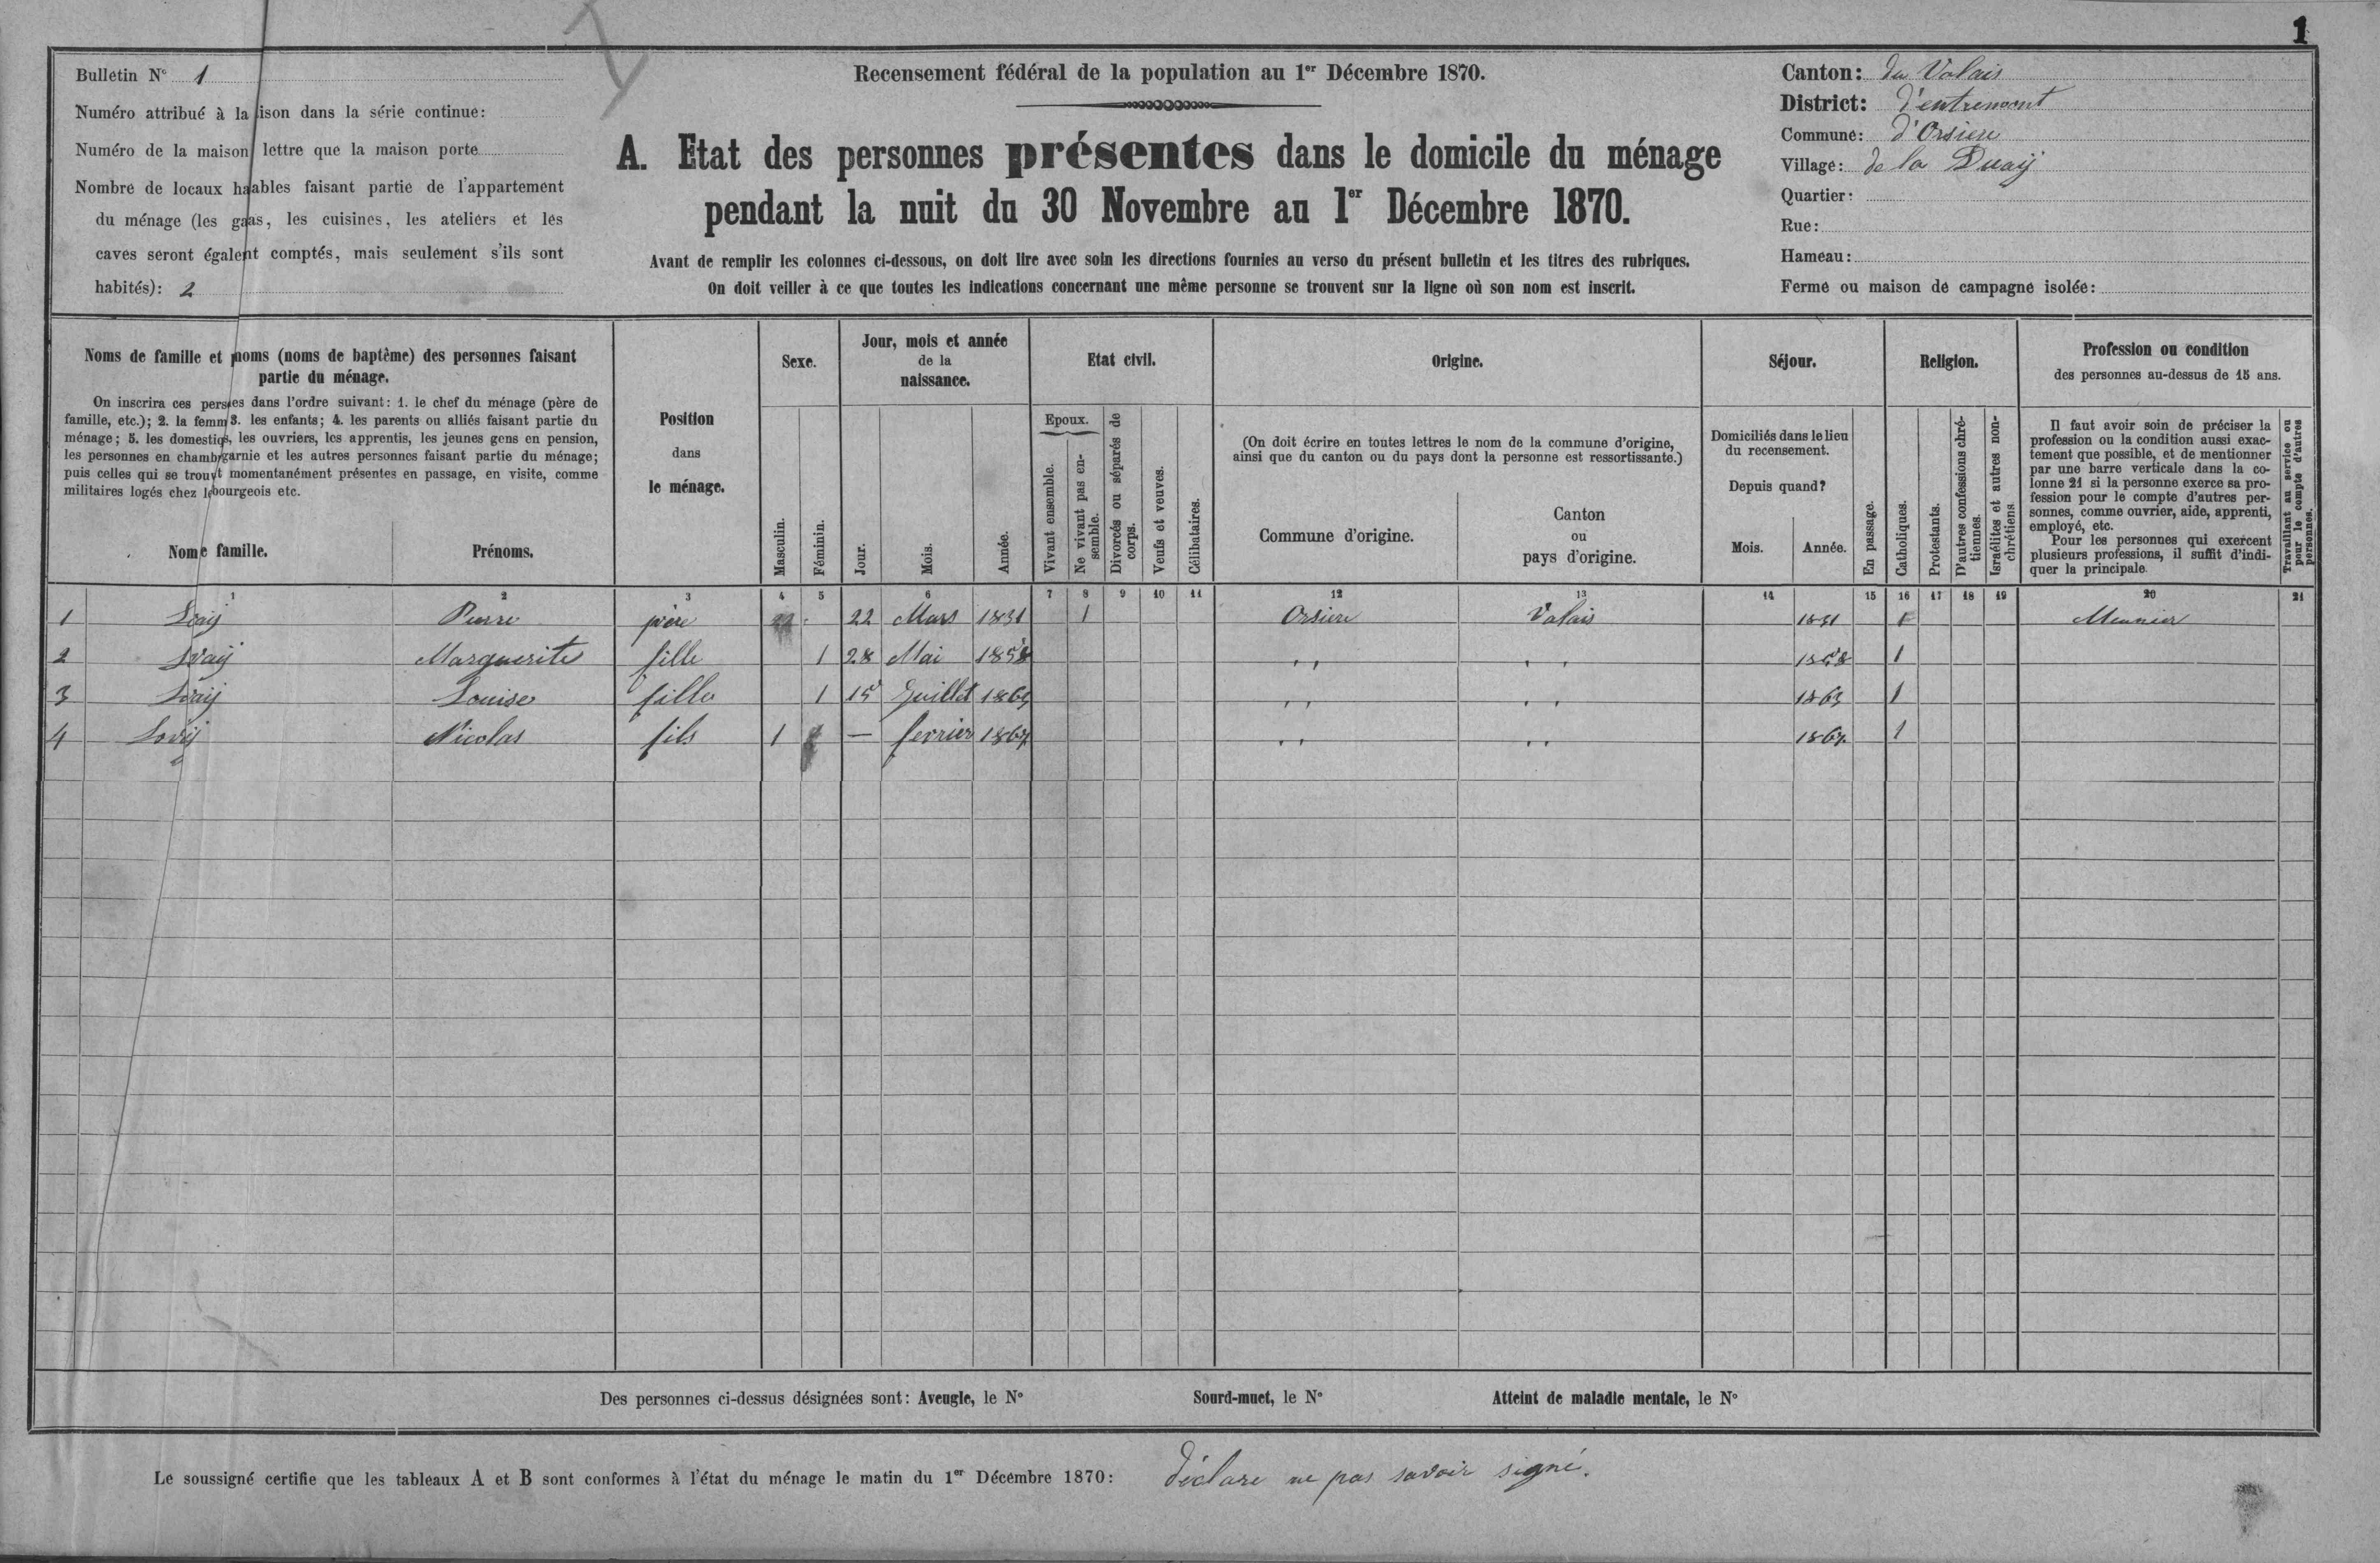 1
Bulletin N° 1
Numéro attribué à la ison dans la série continue:
Numéro de la maison lettre que la maison porte
Nombre de locaux haables faisant partie de l'appartement
du ménage (les gaas, les cuisines, les ateliers et les
caves seront égalent comptés, mais seulement s'ils sont
habités): 2
Recensement fédéral de la population au 1er Décembre 1870.
A. Etat des personnes présentes dans le domicile du ménage
pendant la nuit du 30 Novembre au 1er Décembre 1870.
Avant de remplir les colonnes ci-dessous, on doit lire avec soin les directions fournies au verso du présent bulletin et les titres des rubriques.
On doit veiller à ce que toutes les indications concernant une même personne se trouvent sur la ligne où son nom est inscrit.
Canton: du Valais
District: d'entremont
Commune: d'Orsiere
Village: de la
Quartier:
Rue:
Hameau:
Ferme ou maison de campagne isolée:
Noms de famille et noms (noms de baptême) des personnes faisant
partie du ménage.
On inscrira ces perses dans l'ordre suivant: 1. le chef du ménage (père de
famille, etc.); 2. la femm 3. les enfants; 4. les parents ou alliés faisant partie du
ménage; 5. les domestiqs, les ouvriers, les apprentis, les jeunes gens en pension,
les personnes en chambgarnie et les autres personnes faisant partie du ménage;
puis celles qui se trouvt momentanément présentes en passage, en visite, comme
militaires logés chez lebourgeois etc.
Nome famille.
Prénoms.
Position
dans
le ménage.
Sexe.
Masculin.
Féminin.
Jour, mois et année
de la
naissance.
Jour.
Mois.
Année.
Etat civil.
Epoux.
Vivant ensemble.
Ne vivant pas en-
semble.
Divorcés ou séparés de
corps.
Veufs et veuves.
Célibataires.
Origine.
(On doit écrire en toutes lettres le nom de la commune d'origine,
ainsi que du canton ou du pays dont la personne est ressortissante.)
Commune d'origine.
Canton
ou
pays d'origine.
Séjour.
Domiciliés dans le lieu
du recensement.
Depuis quand?
Mois.
Année.
En passage.
Religion.
Catholiques.
Protestants.
D'autres confessions chré-
tiennes.
Israélites et autres non-
chrétiens.
Profession ou condition
des personnes au-dessus de 15 ans.
Il faut avoir soin de préciser la
profession ou la condition aussi exac-
tement que possible, et de mentionner
par une barre verticale dans la co-
lonne 21 si la personne exerce sa pro-
fession pour le compte d'autres per-
sonnes, comme ouvrier, aide, apprenti,
employé, etc.
Pour les personnes qui exercent
plusieurs professions, il suffit d'indi-
quer la principale.
Travaillant au service ou
pour le compte d'autres
personnes.
1 2 3 4 5 6 7 8 9 10 11 12 13 14 15 16 17 18 19 20 21
1 Pierre père 22 Mars 1831 1 Orsiere Valais 1831 1 Meunier
2 Marguerite fille 1 28 Mai 1858 ,, ,, 1858 1
3 Louise fille 1 15 Juillet 1865 ,, ,, 1865 1
4 Lovij Nicolas fils 1 — fevrier 1867 ,, ,, 1867 1
Des personnes ci-dessus désignées sont: Aveugle, le N° Sourd-muet, le N° Atteint de maladie mentale, le N°
Le soussigné certifie que les tableaux A et B sont conformes à l'état du ménage le matin du 1er Décembre 1870: déclare ne pas savoir signé.